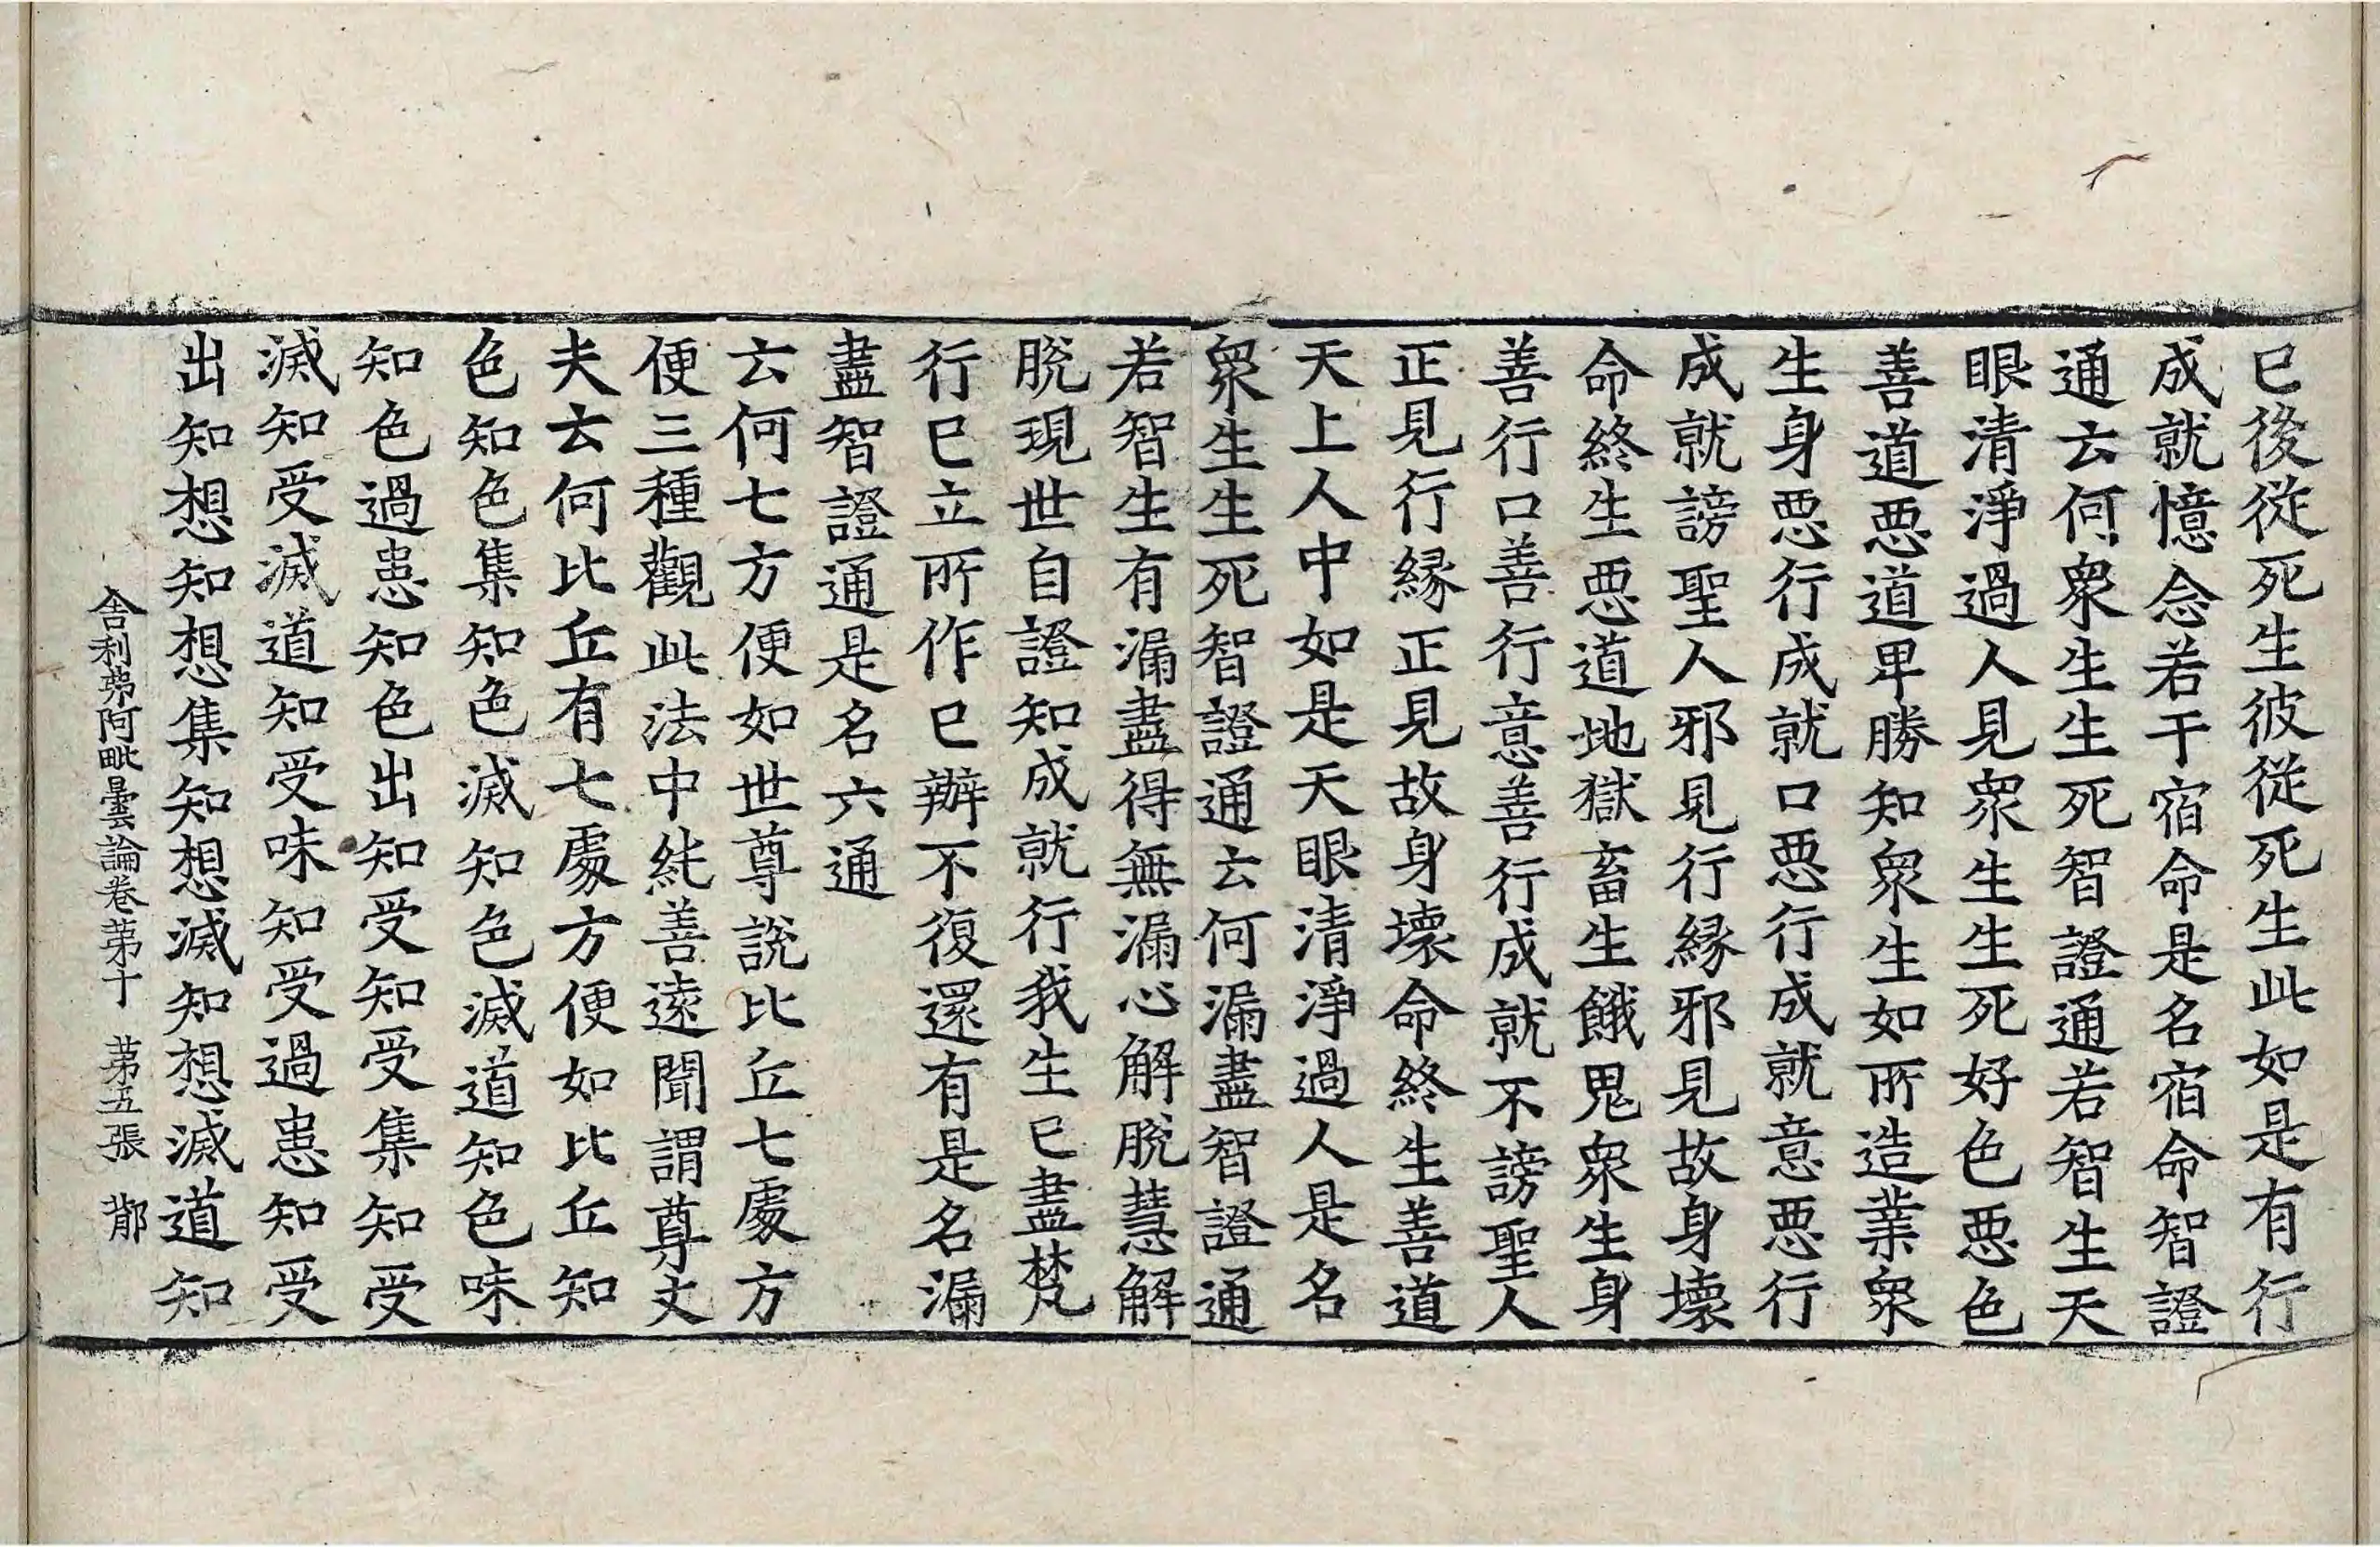 已後從死生彼從死生此如是有行
成就憶念若干宿命是名宿命智證
通云何衆生生死智證通若智生天
眼清淨過人見衆生生死好色惡色
善道惡道卑勝知衆生如所造業衆
生身惡行成就口惡行成就意惡行
成就謗聖人邪見行緣邪見故身壞
命終生惡道地獄畜生餓鬼衆生身
善行口善行意善行成就不謗聖人
正見行緣正見故身壞命終生善道
天上人中如是天眼清淨過人是名
衆生生死智證通云何漏盡智證通
若智生有漏盡得無漏心解脫慧解
脫現世自證知成就行我生已盡梵
行已立所作已辦不復還有是名漏
盡智證通是名六通
云何七方便如世尊說比丘七處方
便三種觀此法中純善遠聞謂尊丈
夫云何比丘有七處方便如比丘知
色知色集知色滅知色滅道知色味
知色過患知色出知受知受集知受
滅知受滅道知受味知受過患知受
出知想知想集知想滅知想滅道知
舍利弗阿毗曇論卷第十 第五張